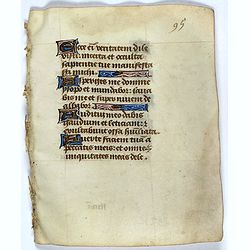 95
Ecce eni veritatem dile
xisti: incerta et occulta
sapientie tue manifesta
sti michi.
Asperges me domine
ysopo et mundabor: lava
bis me et super nivem de
albabor.
Auditui meo dabis
gaudium et leticiam:
exultabunt ossa humiliata.
Averte faciem tuam a
peccatis meis: et omnes
iniquitates meas dele.